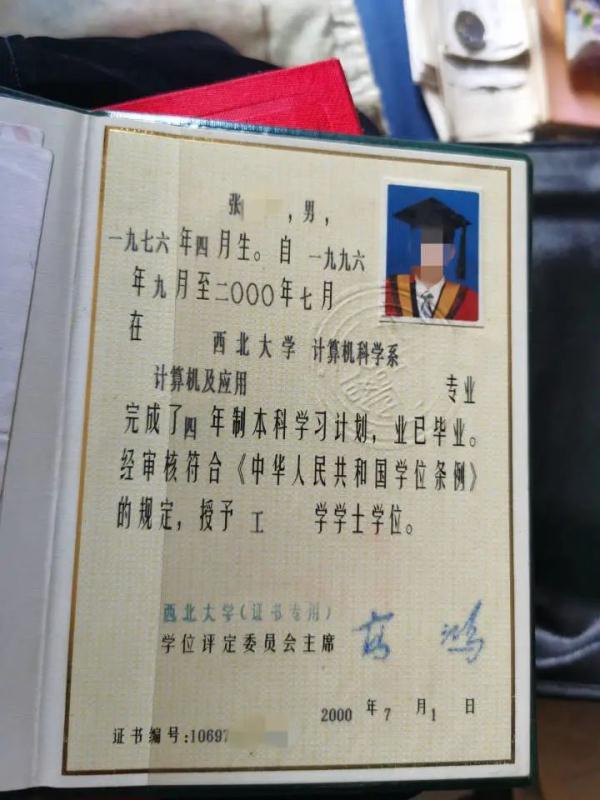 张 ，男，
一九七六年四月生。自一九九六
年九月至二〇〇〇年七月
在 西北大学 计算机科学系
计算机及应用 专业
完成了四年制本科学习计划，业已毕业。
经审核符合《中华人民共和国学位条例》
的规定，授予 工 学学士学位。
西北大学(证书专用)
学位评定委员会主席
2000 年 7 月 1 日
证书编号:10697